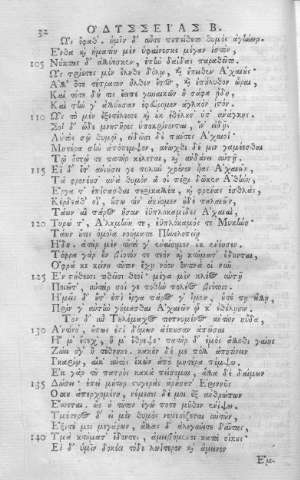 32 ΟΔΥΣΣΕΙΑΣ Β.
Ὣς ἔφαθ', ἡμῖν δ' αὖτε πεπείθετο θυμὸς ἀγήνωρ.
Ἔνθα καὶ ἠματίη μὲν ὑφαίνεσκε μέγαν ἱστὸν,
105 Νύκτας δ' ἀλλύεσκεν, ἐπὴν δαΐδας παραθεῖτο.
Ὣς τρίετες μὲν ἔληθε δόλῳ, καὶ ἔπειθεν Ἀχαιούς·
Ἀλλ' ὅτε τέτρατον ἦλθεν ἔτος, καὶ ἐπήλυθον ὧραι,
Καὶ τότε δή τις ἔειπε γυναικῶν ἣ σάφα ᾔδη,
Καὶ τήν γ' ἀλλύουσαν ἐφεύρομεν ἀγλαὸν ἱστόν.
110 Ὣς τὸ μὲν ἐξετέλεσσε καὶ οὐκ ἐθέλουσ' ὑπ' ἀνάγκης.
Σοὶ δ' ὧδε μνηστῆρες ὑποκρίνονται, ἵν' εἰδῇς
Αὐτὸς σῷ θυμῷ, εἰδῶσι δὲ πάντες Ἀχαιοί.
Μητέρα σὴν ἀπόπεμψον, ἄνωχθι δέ μιν γαμέεσθαι
Τῷ ὅτεῳ τε πατὴρ κέλεται, καὶ ἁνδάνει αὐτῇ.
115 Εἰ δ' ἔτ' ἀνιήσει γε πολὺν χρόνον υἷας Ἀχαιῶν,
Τὰ φρονέουσ' ἀνὰ θυμὸν ἅ οἱ περὶ δῶκεν Ἀθήνη,
Ἔργα τ' ἐπίστασθαι περικαλλέα, καὶ φρένας ἐσθλὰς,
Κέρδεά θ', οἷ' οὔπω τιν' ἀκούομεν οὐδὲ παλαιῶν,
Τάων αἳ πάρος ἦσαν ἐϋπλοκαμῖδες Ἀχαιαὶ,
120 Τυρώ τ', Ἀλκμήνη τε, ἐϋπλόκαμός τε Μυκήνη·
Τάων οὔτις ὁμοῖα νοήματα Πηνελοπείῃ
ᾜδη· ἀτὰρ μὲν τοῦτό γ' ἐναίσιμον οὐκ ἐνόησε.
Τόφρα γὰρ οὖν βίοτόν τε τεὸν καὶ κτήματ' ἔδονται,
Ὄφρα κε κείνη τοῦτον ἔχῃ νόον ὅντινά οἱ νῦν
125 Ἐν στήθεσσι τιθεῖσι θεοί· μέγα μὲν κλέος αὐτῇ
Ποιεῖτ', αὐτὰρ σοί γε ποθὴν πολέος βιότοιο.
Ἡμεῖς δ' οὔτ' ἐπὶ ἔργα πάρος γ' ἴμεν, οὔτε πη ἄλλῃ,
Πρίν γ' αὐτὴν γήμασθαι Ἀχαιῶν ᾧ κ' ἐθέλῃσιν.
Τὸν δ' αὖ Τηλέμαχος πεπνυμένος ἀντίον ηὔδα,
130 Ἀντίνο', οὔπως ἐστὶ δόμων ἀέκουσαν ἀπῶσαι
Ἥ μ' ἔτεχ', ἥ μ' ἔθρεψε· πατὴρ δ' ἐμὸς ἄλλοθι γαίης
Ζώει ὅγ' ἢ τέθνηκε. κακὸν δέ με πόλλ' ἀποτίνειν
Ἰκαρίῳ, αἴκ' αὐτὸς ἑκὼν ἀπὸ μητέρα πέμψω.
Ἐκ γὰρ τοῦ πατρὸς κακὰ πείσομαι, ἄλλα δὲ δαίμων
135 Δώσει· ἐπεὶ μήτηρ στυγερὰς ἀρήσετ' Ἐριννῦς
Οἴκου ἀπερχομένη, νέμεσις δέ μοι ἐξ ἀνθρώπων
Ἔσσεται, ὣς οὐ τοῦτον ἐγώ ποτε μῦθον ἐνίψω.
Ὑμέτερος δ' εἰ μὲν θυμὸς νεμεσίζεται αὐτῶν,
Ἔξιτέ μοι μεγάρων, ἄλλας δ' ἀλεγύνετε δαῖτας,
140 Ὑμὰ κτήματ' ἔδοντες, ἀμειβόμενοι κατὰ οἴκους·
Εἰ δ' ὑμῖν δοκέει τόδε λωΐτερον καὶ ἄμεινον
Ἔμ-